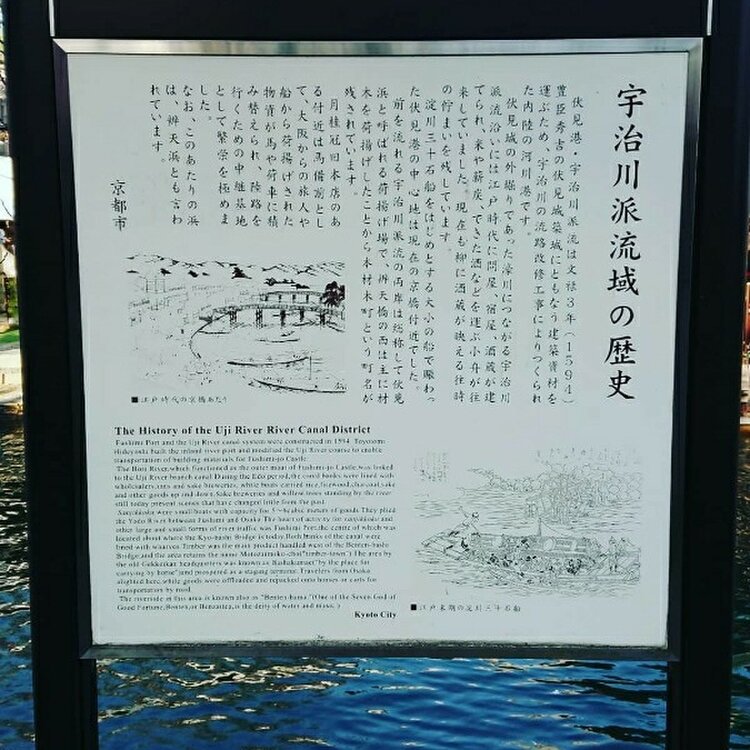 宇治川派流域の歴史
伏見港・宇治川派流は文禄3年(1594)
豊臣秀吉の伏見城築城にともなう建築資材を
運ぶため、宇治川の流路改修工事によりつくられ
た内陸の河川港です。
伏見城の外堀りであった濠川につながる宇治川
派流沿いには江戸時代に問屋、宿屋、酒蔵が建
てられ、米や薪炭、できた酒などを運ぶ小舟が往
来していました。現在も柳に酒蔵が映える往時
の佇まいを残しています。
淀川三十石船をはじめとする大小の船で賑わっ
た伏見港の中心地は現在の京橋付近でした。
前を流れる宇治川派流の両岸は総称して伏見
浜と呼ばれる荷揚げ場で、弁天橋の西は主に材
木を荷揚げしたことから本材木町という町名が
残されています。
月桂冠旧本店のあ
る付近は馬借前とし
て、大阪からの旅人や
船から荷揚げされた
物資が馬や荷車に積
み替えられ、陸路を
行くための中継基地
として繁学を極めま
した。
なお、このあたりの浜
は、辨天浜とも言わ
れています。
京都市
■江戸時代の京橋あたり
The History of the Uji River River Canal District
Fushimi Port and the Uji River canal system were constructed in 1594. Toyotomi
Hideyoshi built the inland river port and modified the Uji River course to enable
transportation of building materials for Fushimi-jo Castle.
The Hori River, which functioned as the outer moat of Fushimi-jo Castle, was linked
to the Uji River branch canal. During the Edo period, the canal banks were lined with
wholesalers, inns and sake breweries, while boats carried rice, firewood, charcoal, sake
and other goods up and down. Sake breweries and willow trees standing by the river
still today present scenes that have changed little from the past.
were small boats with capacity for cubic meters of goods. They plied
the Yodo River between Fushimi and Osaka. The heart of activity for and
other large and small forms of river traffic was Fushimi Port, the centre of which was
located about where the Kyo-bashi Bridge is today. Both banks of the canal were
lined with wharves. Timber was the main product handled west of the Benten-bashi
Bridge, and the area retains the name "timber town". The area by
the old Gekkeikan headquarters was known as by the place for
carrying by horse" and prospered as a staging terminal. Travelers from Osaka
alighted here, while goods were offloaded and repacked onto horses or carts for
transportation by road.
The riverside in this area is known also as "Benten-hama." (One of the Seven God of
Good Fortune, Benten, or Benzaiten, is the deity of water and music.)
Kyoto City
■江戸末期の淀川三十石船